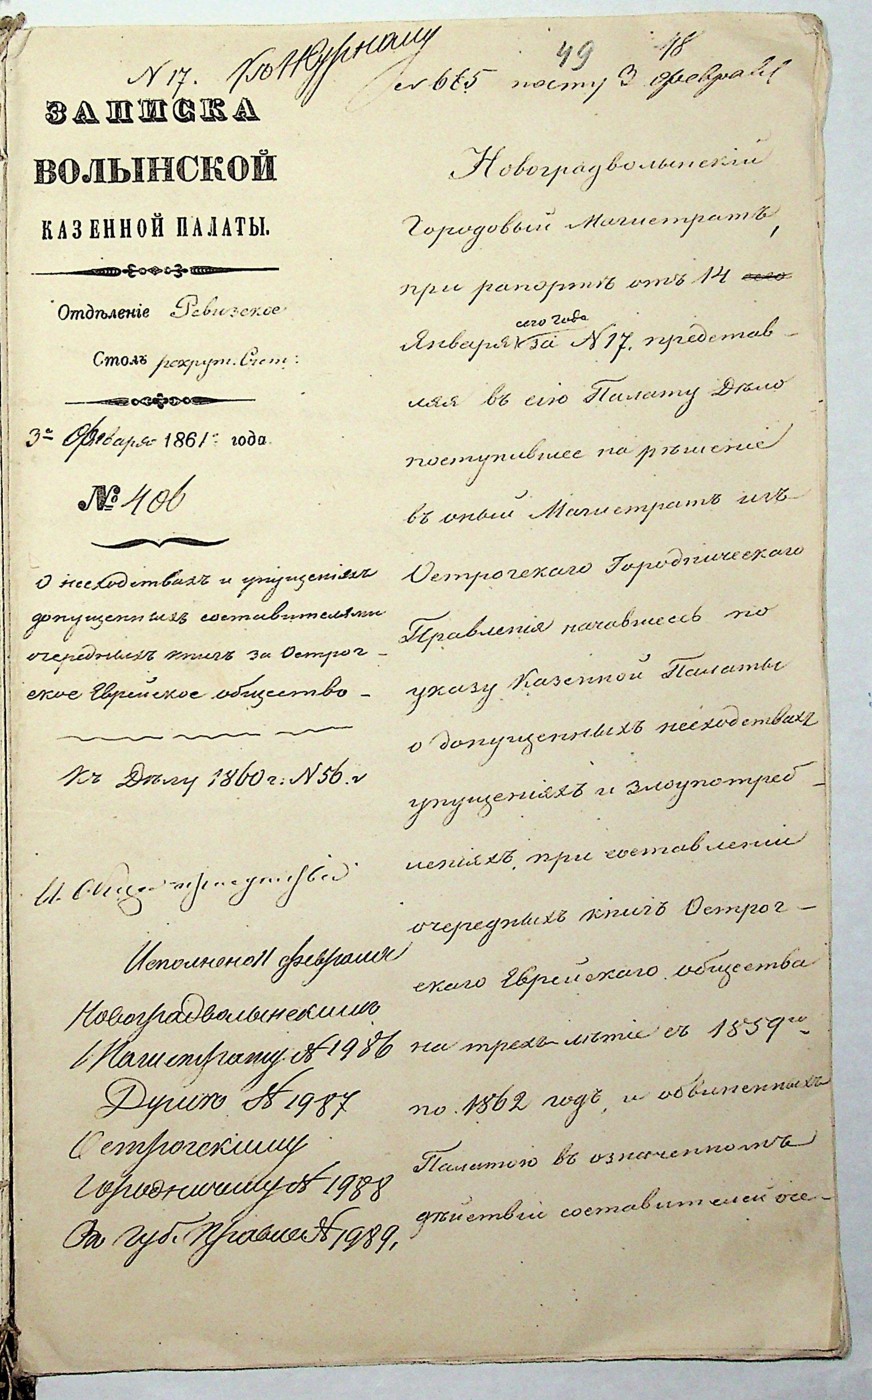 49 48
N 17. Къ Журналу
ст 665 пункту 3 февраля
ЗАПИСКА
ВОЛЫНСКОЙ
КАЗЕННОЙ ПАЛАТЫ.
Отдѣленіе Ревизское
Столъ рекрут. Счет:
3го Февраля 1861го года
№ 406
О несходствахъ и упущеніяхъ
допущенныхъ составителями
очередныхъ книгъ за Острог-
ское Еврейское общество -
Къ Дѣлу 1860 г: N 56.
Исполнено 11 февраля
Новоградволынскимъ
Магистрату № 1986
Думою № 1987
Острогскому
Городничему № 1988
Губ. Правле № 1989,
Новоградволынскій
Городовый Магистратъ,
при рапортѣ отъ 14 сего
сего года
Января за N 17, представ-
ляя въ сію Палату Дѣло
поступившее на рѣшеніе
въ оный Магистратъ изъ
Острогскаго Городническаго
Правленія начавшееся по
указу Казенной Палаты
о допущенныхъ несходствахъ
упущеніяхъ и злоупотреб-
леніяхъ, при составленіи
очередныхъ книгъ Острог-
скаго Еврейскаго общества
на трехлѣтіе съ 1859го
по 1862 годъ, и обвиненныхъ
Палатою въ означенномъ
дѣйствіи составителей оче-